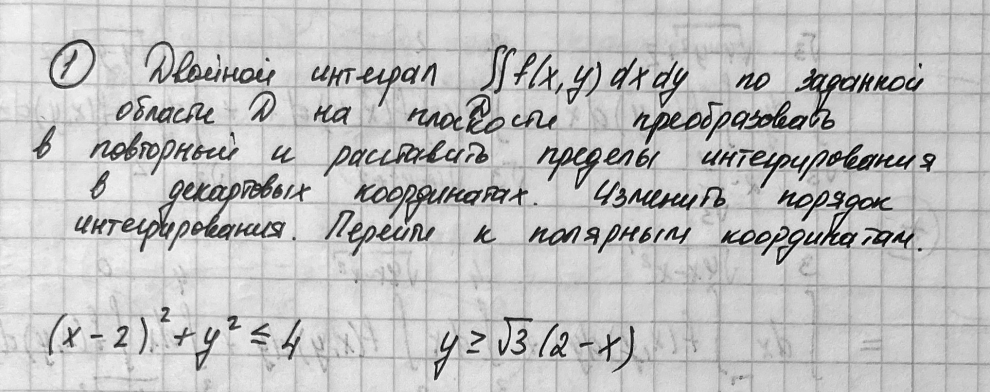 ① Двойной интеграл ∬f(x,y) dx dy по заданной
D
области D на плоскости преобразовать
в повторный и расставить пределы интегрирования
в декартовых координатах. Изменить порядок
интегрирования. Перейти к полярным координатам.
(x-2)² + y² ≤ 4 y ≥ √3 (2-x)